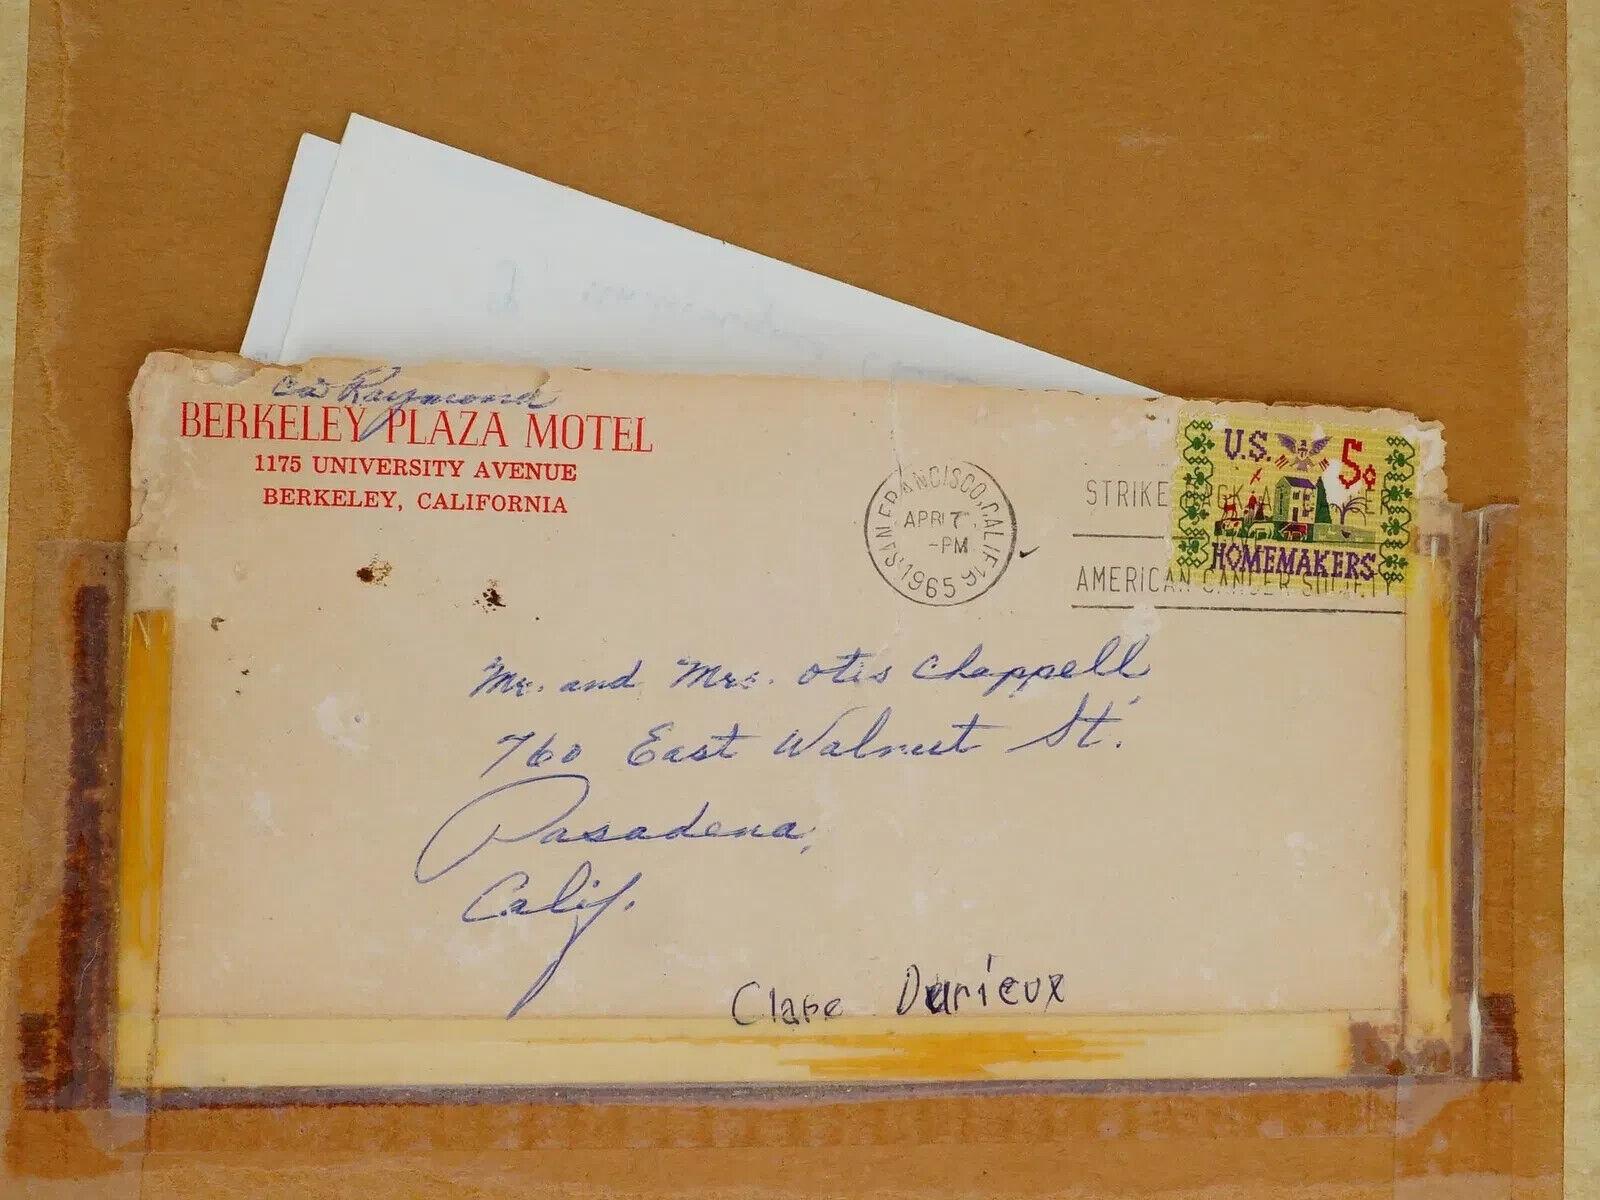 Raymond
BERKELEY PLAZA MOTEL
1175 UNIVERSITY AVENUE
BERKELEY, CALIFORNIA
SAN FRANCISCO, CALIF.
APR 7
-PM
1965
STRIKE BACK AT CANCER
AMERICAN CANCER SOCIETY
U.S. 5¢
HOMEMAKERS
Mr. and Mrs. Otis Chappell
760 East Walnut St.
Pasadena,
Calif.
Clare Durieux